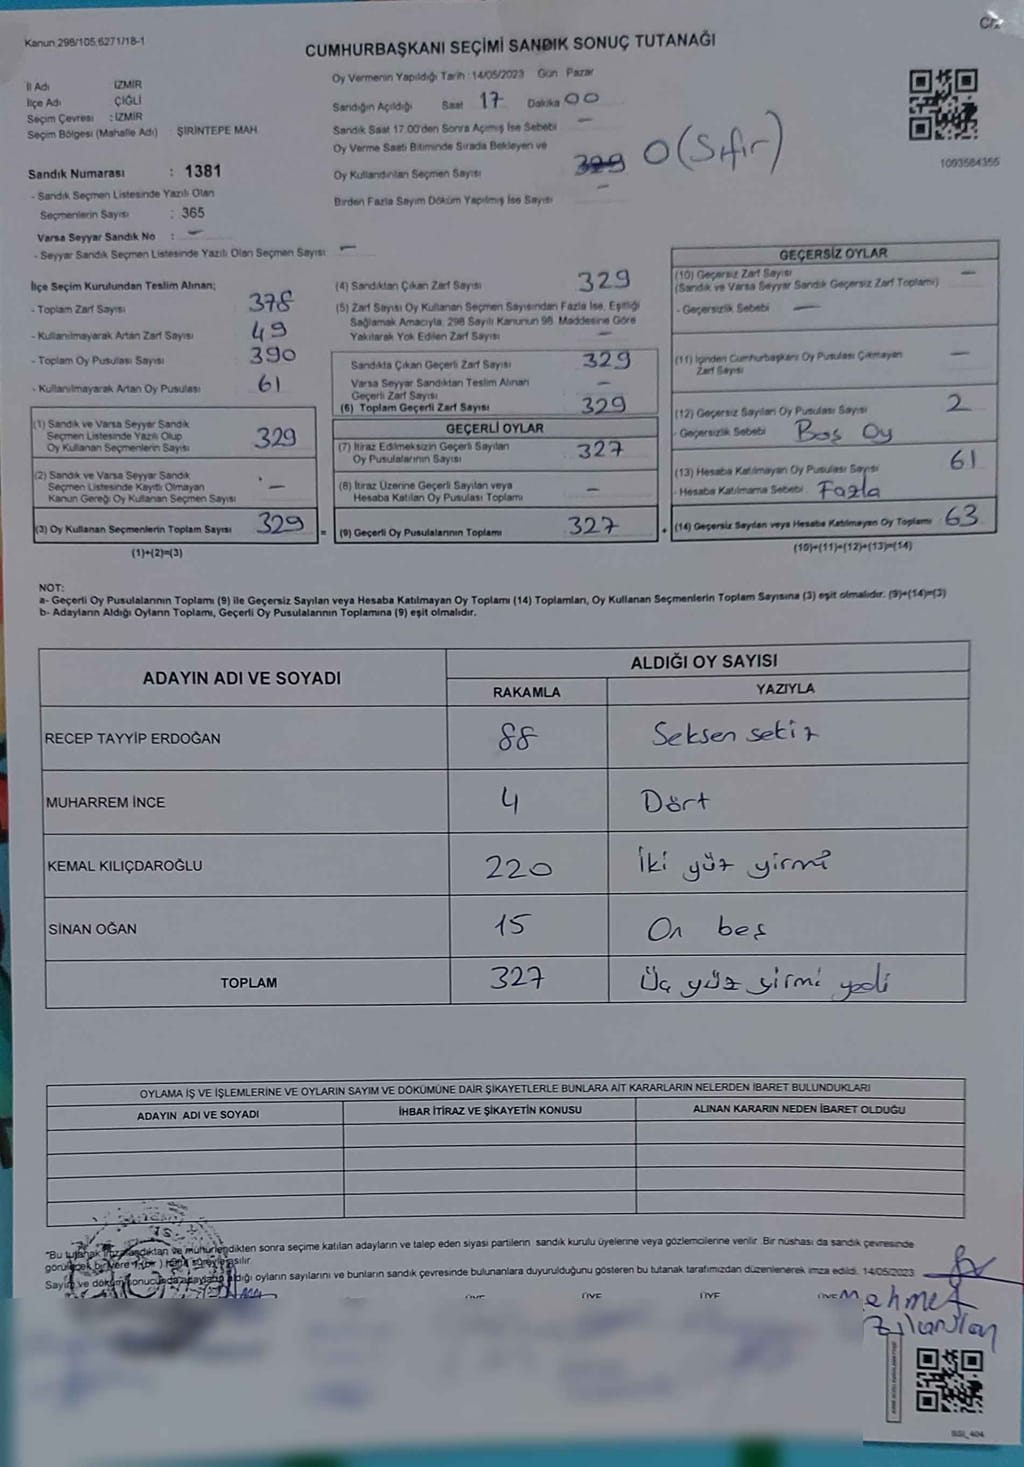 Kanun 298/105 6271/18-1
CUMHURBAŞKANI SEÇİMİ SANDIK SONUÇ TUTANAĞI
İl Adı İZMİR
İlçe Adı ÇİĞLİ
Seçim Çevresi : İZMİR
Seçim Bölgesi (Mahalle Adı) : ŞİRİNTEPE MAH.
Sandık Numarası : 1381
- Sandık Seçmen Listesinde Yazılı Olan
Seçmenlerin Sayısı : 365
Varsa Seyyar Sandık No : -
- Seyyar Sandık Seçmen Listesinde Yazılı Olan Seçmen Sayısı -
Oy Vermenin Yapıldığı Tarih : 14/05/2023 Gün Pazar
Sandığın Açıldığı Saat 17 Dakika 00
Sandık Saat 17.00'den Sonra Açılmış İse Sebebi -
Oy Verme Saati Bitiminde Sırada Bekleyen ve
Oy Kullandırılan Seçmen Sayısı 329 0 (Sıfır)
Birden Fazla Sayım Döküm Yapılmış İse Sayısı -
1093584355
İlçe Seçim Kurulundan Teslim Alınan;
- Toplam Zarf Sayısı 378
- Kullanılmayarak Artan Zarf Sayısı 49
- Toplam Oy Pusulası Sayısı 390
- Kullanılmayarak Artan Oy Pusulası 61
(1) Sandık ve Varsa Seyyar Sandık
Seçmen Listesinde Yazılı Olup
Oy Kullanan Seçmenlerin Sayısı 329
(2) Sandık ve Varsa Seyyar Sandık
Seçmen Listesinde Kayıtlı Olmayan
Kanun Gereği Oy Kullanan Seçmen Sayısı -
(3) Oy Kullanan Seçmenlerin Toplam Sayısı 329 =
(1)+(2)=(3)
(4) Sandıktan Çıkan Zarf Sayısı 329
(5) Zarf Sayısı Oy Kullanan Seçmen Sayısından Fazla İse, Eşitliği
Sağlamak Amacıyla, 298 Sayılı Kanunun 98. Maddesine Göre
Yakılarak Yok Edilen Zarf Sayısı -
Sandıkta Çıkan Geçerli Zarf Sayısı 329
Varsa Seyyar Sandıktan Teslim Alınan
Geçerli Zarf Sayısı -
(6) Toplam Geçerli Zarf Sayısı 329
GEÇERLİ OYLAR
(7) İtiraz Edilmeksizin Geçerli Sayılan
Oy Pusulalarının Sayısı 327
(8) İtiraz Üzerine Geçerli Sayılan veya
Hesaba Katılan Oy Pusulası Toplamı -
(9) Geçerli Oy Pusulalarının Toplamı 327 +
GEÇERSİZ OYLAR
(10) Geçersiz Zarf Sayısı -
(Sandık ve Varsa Seyyar Sandık Geçersiz Zarf Toplamı)
- Geçersizlik Sebebi -
(11) İçinden Cumhurbaşkanı Oy Pusulası Çıkmayan
Zarf Sayısı -
(12) Geçersiz Sayılan Oy Pusulası Sayısı 2
- Geçersizlik Sebebi Boş Oy
(13) Hesaba Katılmayan Oy Pusulası Sayısı 61
- Hesaba Katılmama Sebebi Fazla
(14) Geçersiz Sayılan veya Hesaba Katılmayan Oy Toplamı 63
(10)+(11)+(12)+(13)=(14)
NOT:
a- Geçerli Oy Pusulalarının Toplamı (9) ile Geçersiz Sayılan veya Hesaba Katılmayan Oy Toplamı (14) Toplamları, Oy Kullanan Seçmenlerin Toplam Sayısına (3) eşit olmalıdır. (9)+(14)=(3)
b- Adayların Aldığı Oyların Toplamı, Geçerli Oy Pusulalarının Toplamına (9) eşit olmalıdır.
ADAYIN ADI VE SOYADI ALDIĞI OY SAYISI
RAKAMLA YAZIYLA
RECEP TAYYİP ERDOĞAN 88 Seksen sekiz
MUHARREM İNCE 4 Dört
KEMAL KILIÇDAROĞLU 220 İki yüz yirmi
SİNAN OĞAN 15 On beş
TOPLAM 327 Üç yüz yirmi yedi
OYLAMA İŞ VE İŞLEMLERİNE VE OYLARIN SAYIM VE DÖKÜMÜNE DAİR ŞİKAYETLERLE BUNLARA AİT KARARLARIN NELERDEN İBARET BULUNDUKLARI
ADAYIN ADI VE SOYADI İHBAR İTİRAZ VE ŞİKAYETİN KONUSU ALINAN KARARIN NEDEN İBARET OLDUĞU
"Bu tutanak imzalandıktan ve mühürlendikten sonra seçime katılan adayların ve talep eden siyasi partilerin sandık kurulu üyelerine veya gözlemcilerine verilir. Bir nüshası da sandık çevresinde
görülecek bir yere 1 (bir) hafta süreyle asılır.
Sayım ve döküm sonucunda adayların aldığı oyların sayılarını ve bunların sandık çevresinde bulunanlara duyurulduğunu gösteren bu tutanak tarafımızdan düzenlenerek imza edildi. 14/05/2023
ÜYE ÜYE ÜYE ÜYE
Mehmet
BSI_404